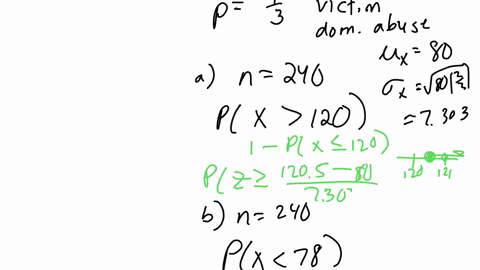 p = 1/3 victim
dom. abuse
μx = 80
a) n = 240
σx = √80(2/3)
= 7.303
P( X > 120)
1 − P( X ≤ 120)
P( z ≥ (120.5 − 80)/7.303
120 121
b) n = 240
P( X < 78)